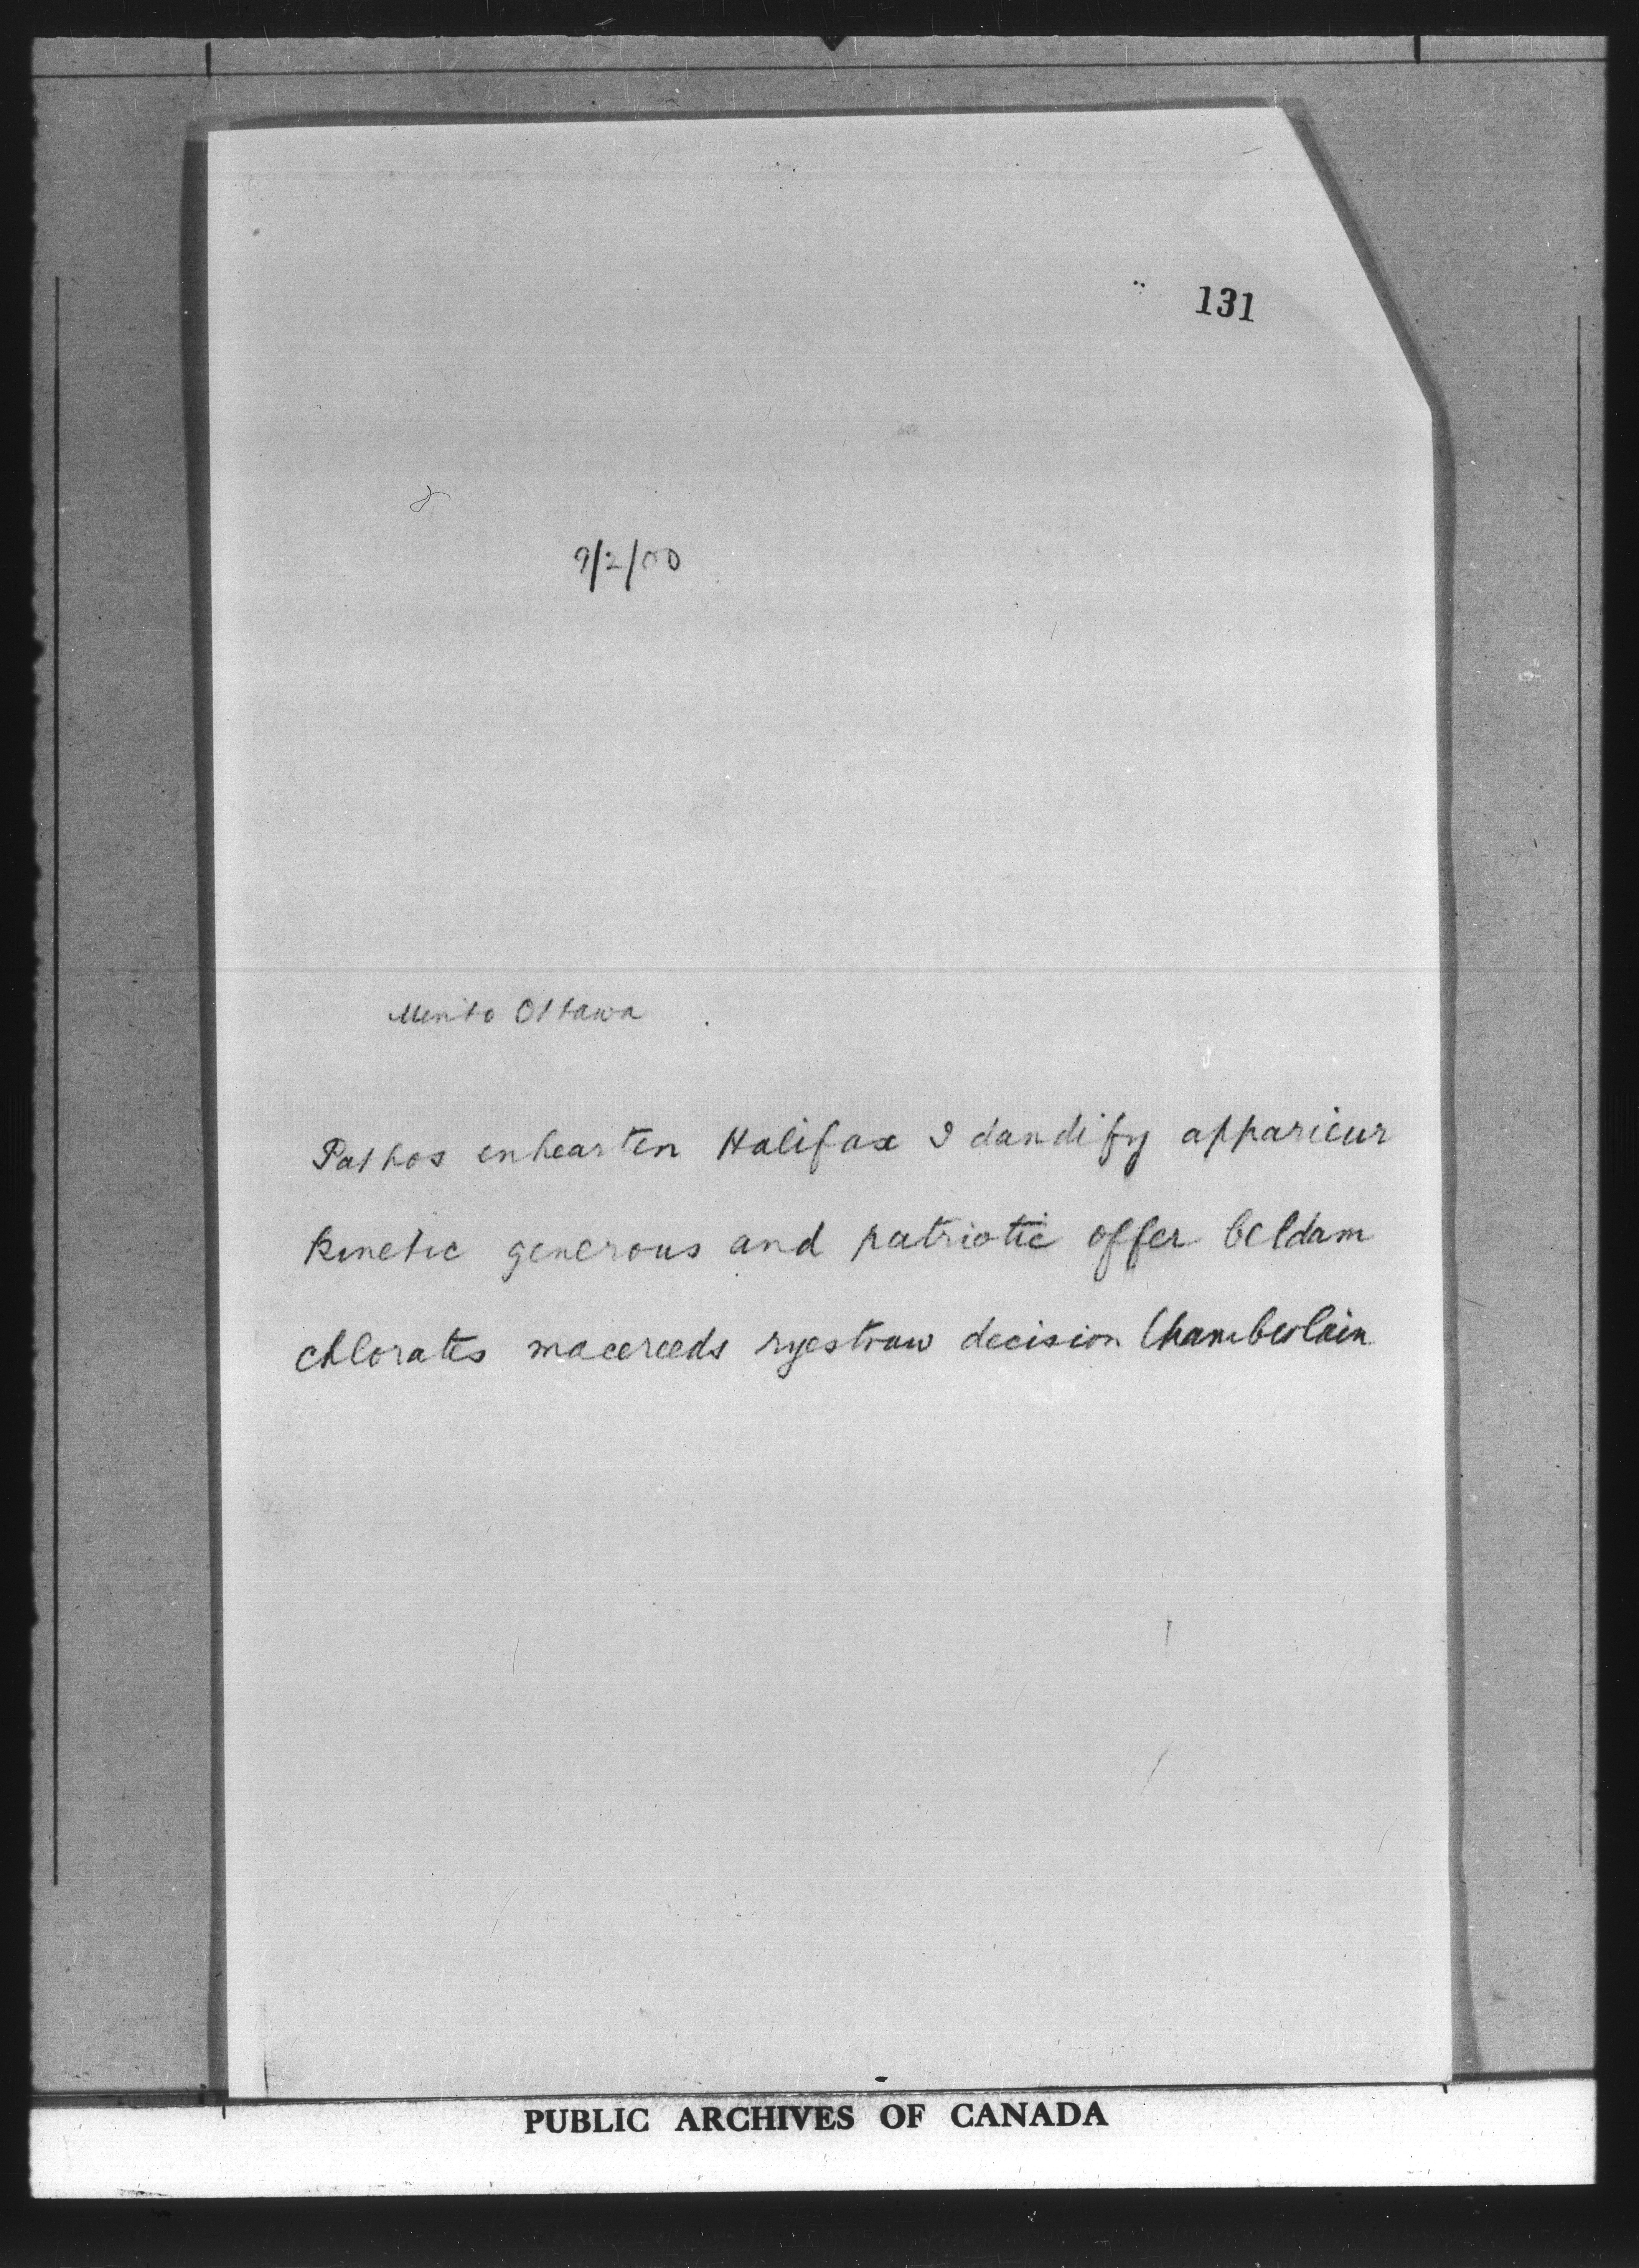 131
9/2/00
Minto Ottawa
Pathos enhearten Halifax I dandify apparieur
kinetic generous and patriotic offer beldam
chlorates macereeds ryestraw decision Chamberlain
PUBLIC ARCHIVES OF CANADA